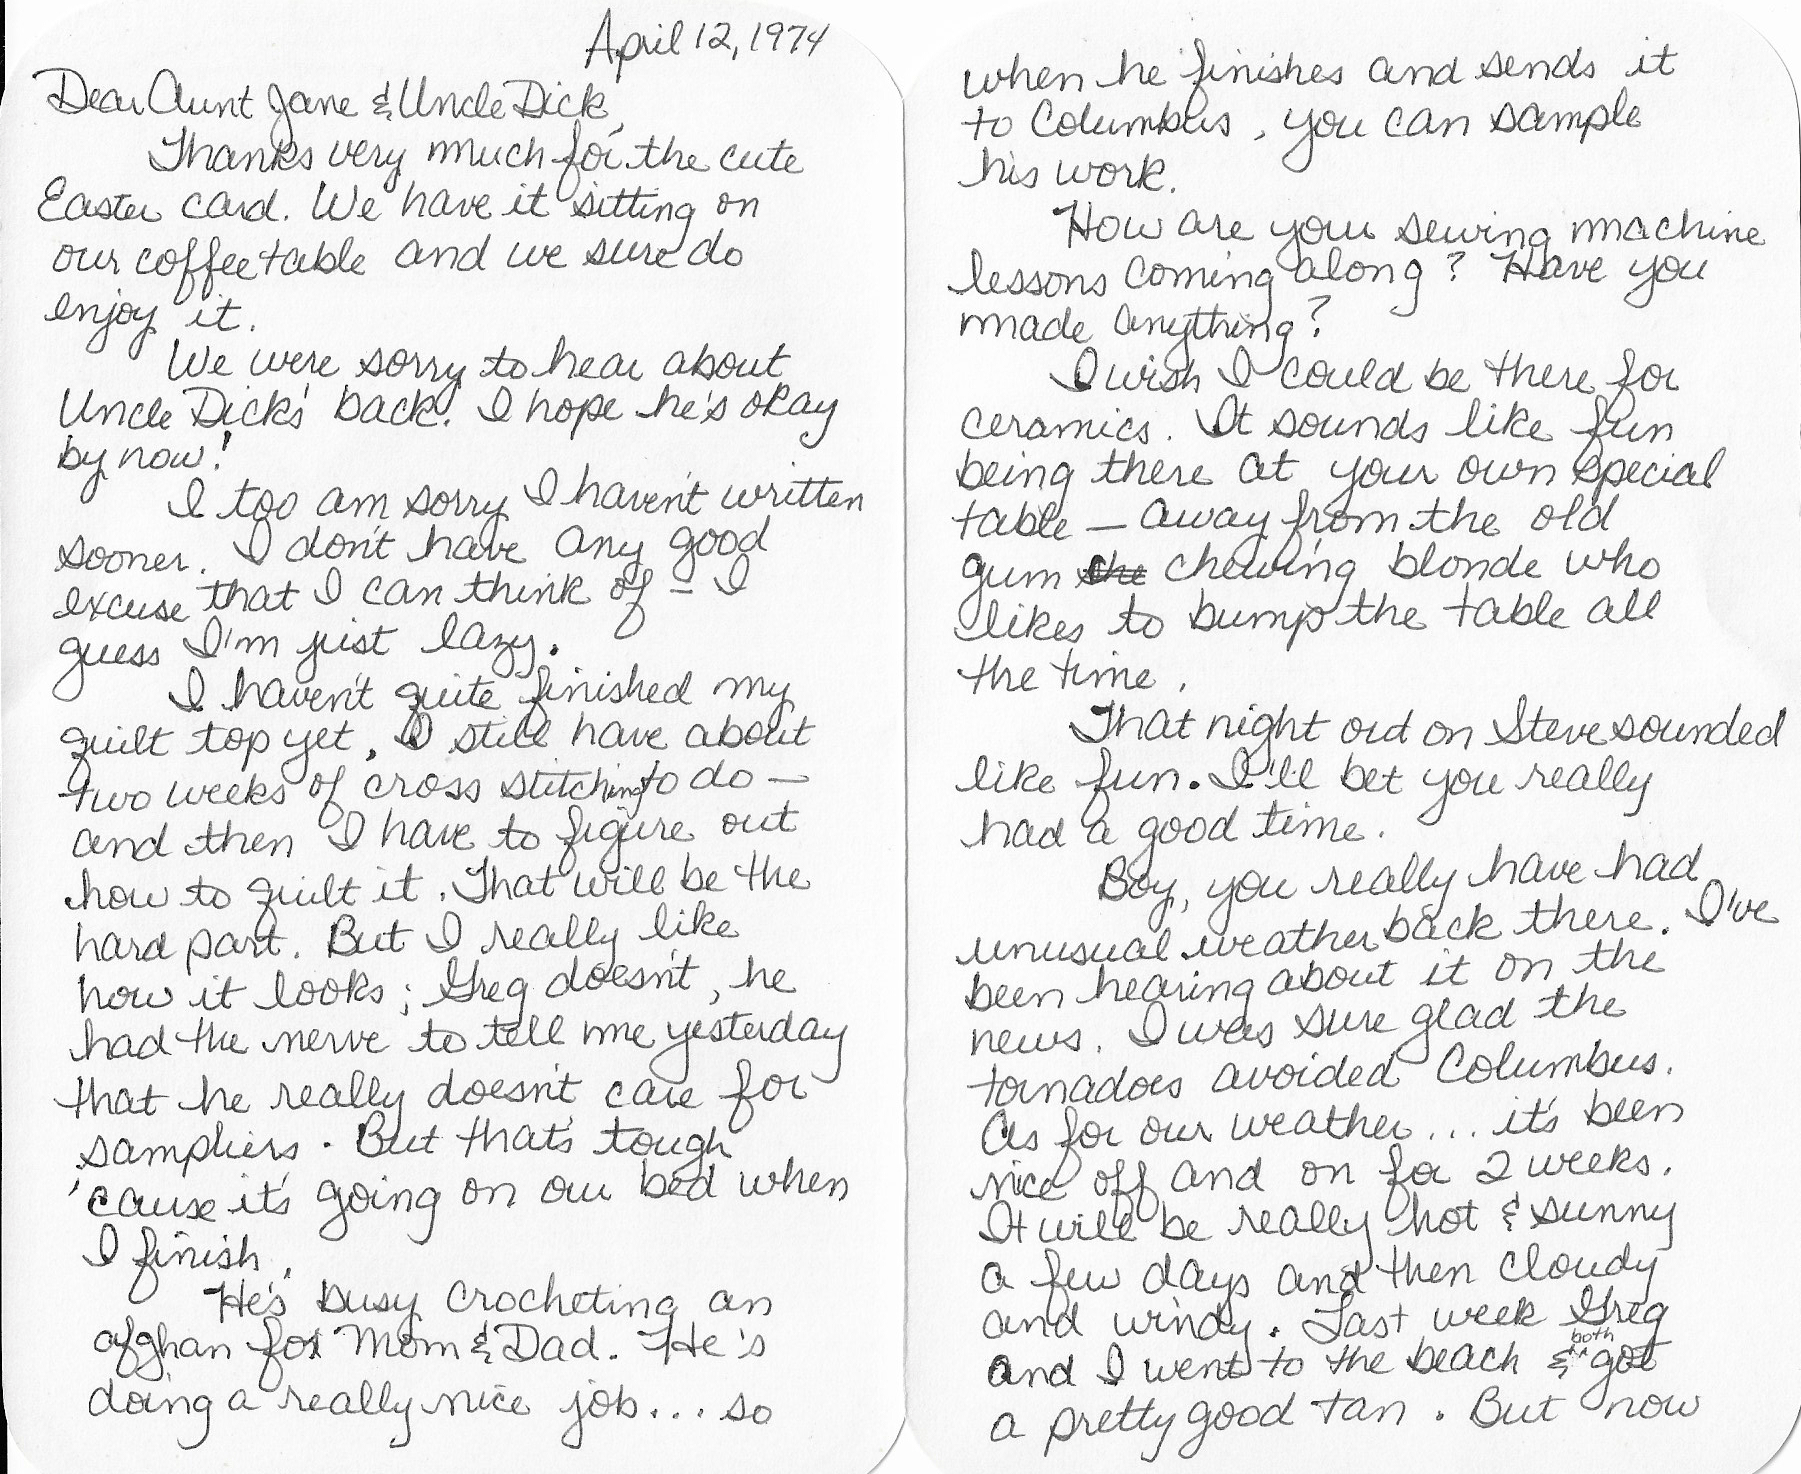 April 12, 1974
Dear Aunt Jane & Uncle Dick,
Thanks very much for the cute
Easter card. We have it sitting on
our coffee table and we sure do
enjoy it.
We were sorry to hear about
Uncle Dick's back. I hope he's okay
by now!
I too am sorry I haven't written
sooner. I don't have any good
excuse that I can think of - I
guess I'm just lazy.
I haven't quite finished my
quilt top yet, I still have about
two weeks of cross stitching to do —
and then I have to figure out
how to quilt it. That will be the
hard part. But I really like
how it looks; Greg doesn't, he
had the nerve to tell me yesterday
that he really doesn't care for
sampliers. But that's tough
'cause it's going on our bed when
I finish.
He's busy crocheting an
afghan for Mom & Dad. He's
doing a really nice job... so
when he finishes and sends it
to Columbus, you can sample
his work.
How are your sewing machine
lessons coming along? Have you
made anything?
I wish I could be there for
ceramics. It sounds like fun
being there at your own special
table — away from the old
gum che chewing blonde who
likes to bump the table all
the time.
That night out on Steve sounded
like fun. I'll bet you really
had a good time.
Boy, you really have had
unusual weather back there. I've
been hearing about it on the
news. I was sure glad the
tornadoes avoided Columbus.
As for our weather... it's been
nice off and on for 2 weeks.
It will be really hot & sunny
a few days and then cloudy
and windy. Last week Greg
and I went to the beach & both got
a pretty good tan. But now